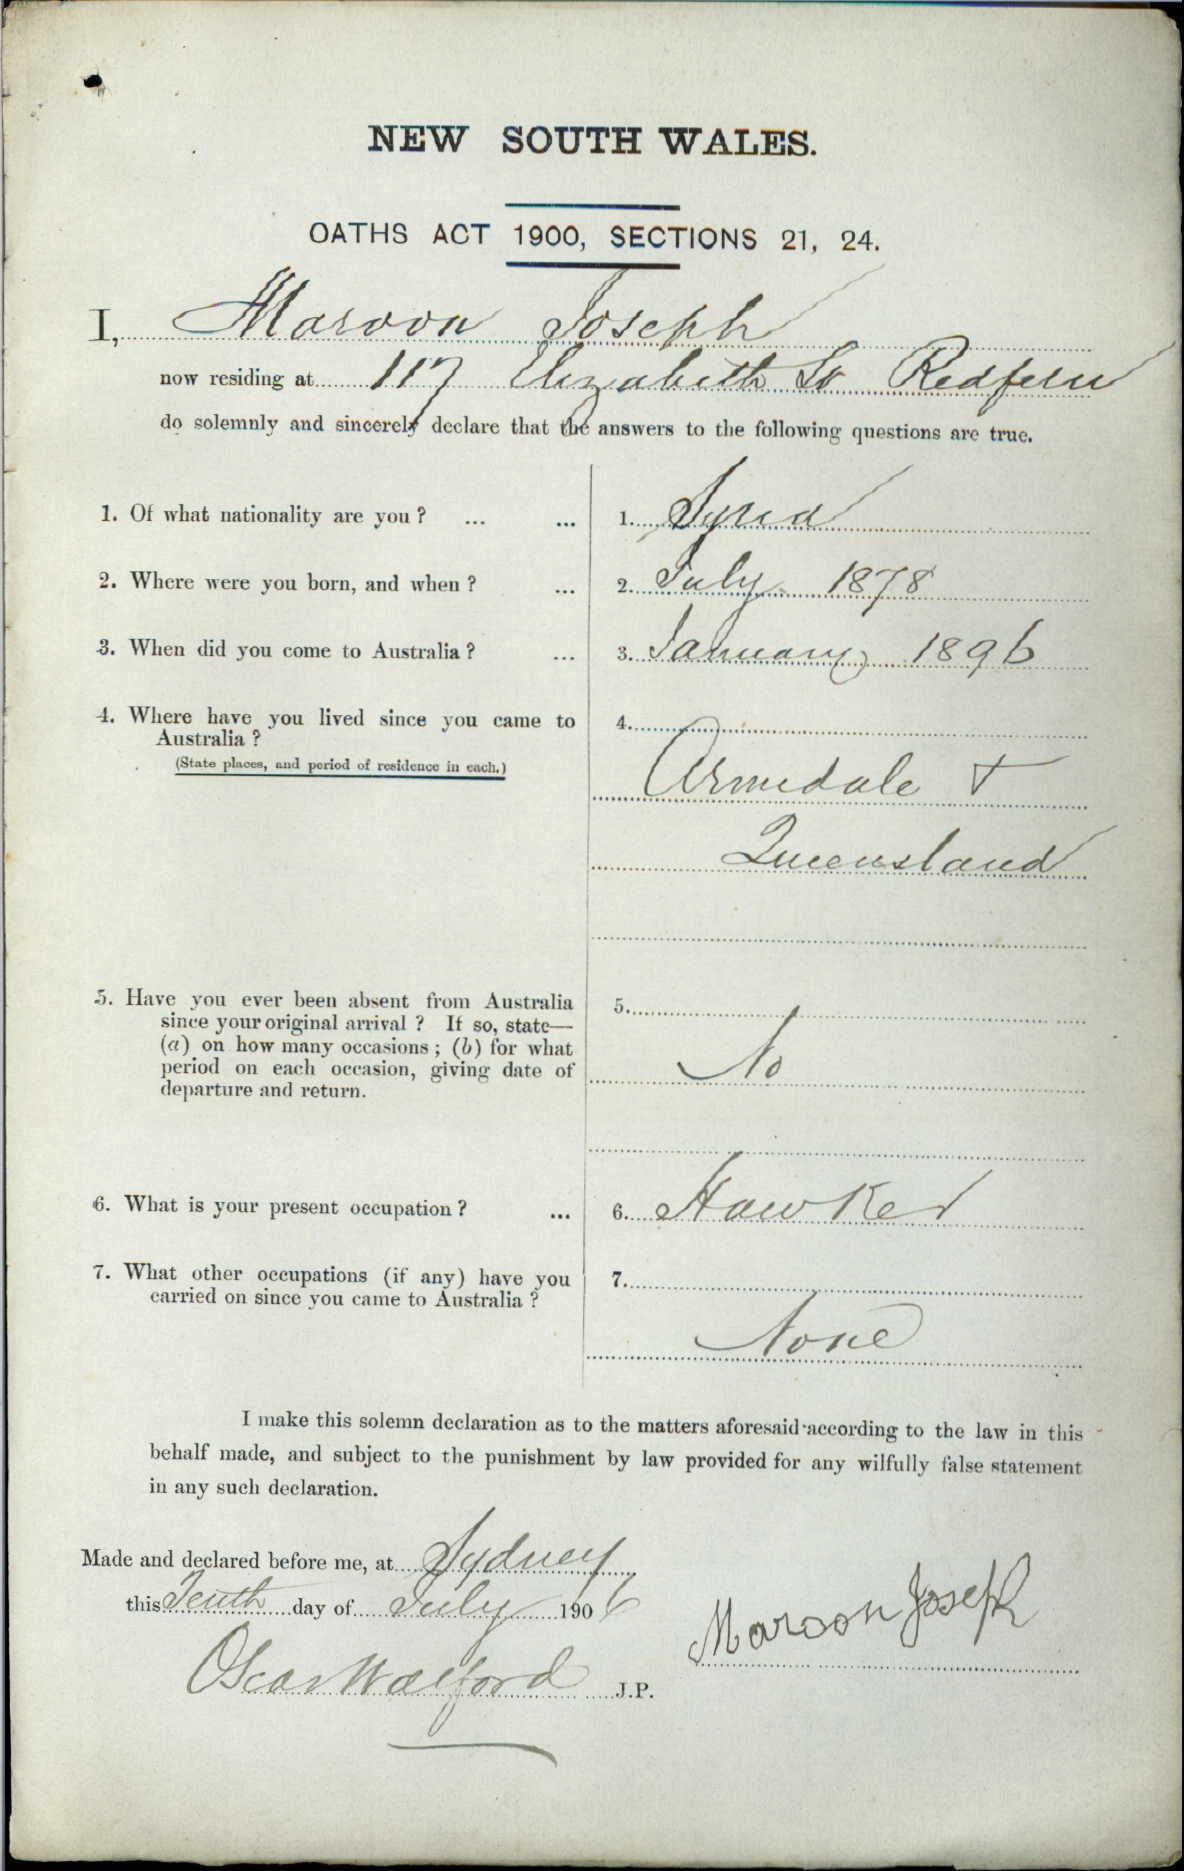 NEW SOUTH WALES.
OATHS ACT 1900, SECTIONS 21, 24.
I, Maroon Joseph
now residing at 117 Elizabeth St Redfern
do solemnly and sincerely declare that the answers to the following questions are true.
1. Of what nationality are you ? ... ... 1. Syria
2. Where were you born, and when ? ... 2. July 1878
3. When did you come to Australia ? ... 3. January 1896
4. Where have you lived since you came to 4.
Australia ?
(State places, and period of residence in each.)
Armidale &
Queensland
5. Have you ever been absent from Australia 5.
since your original arrival ? If so, state—
(a) on how many occasions ; (b) for what
period on each occasion, giving date of No
departure and return.
6. What is your present occupation ? ... 6. Hawker
7. What other occupations (if any) have you 7.
carried on since you came to Australia ?
None
I make this solemn declaration as to the matters aforesaid according to the law in this
behalf made, and subject to the punishment by law provided for any wilfully false statement
in any such declaration.
Made and declared before me, at Sydney
this Tenth day of July 1906
Maroon Joseph
Oscar Walford J.P.